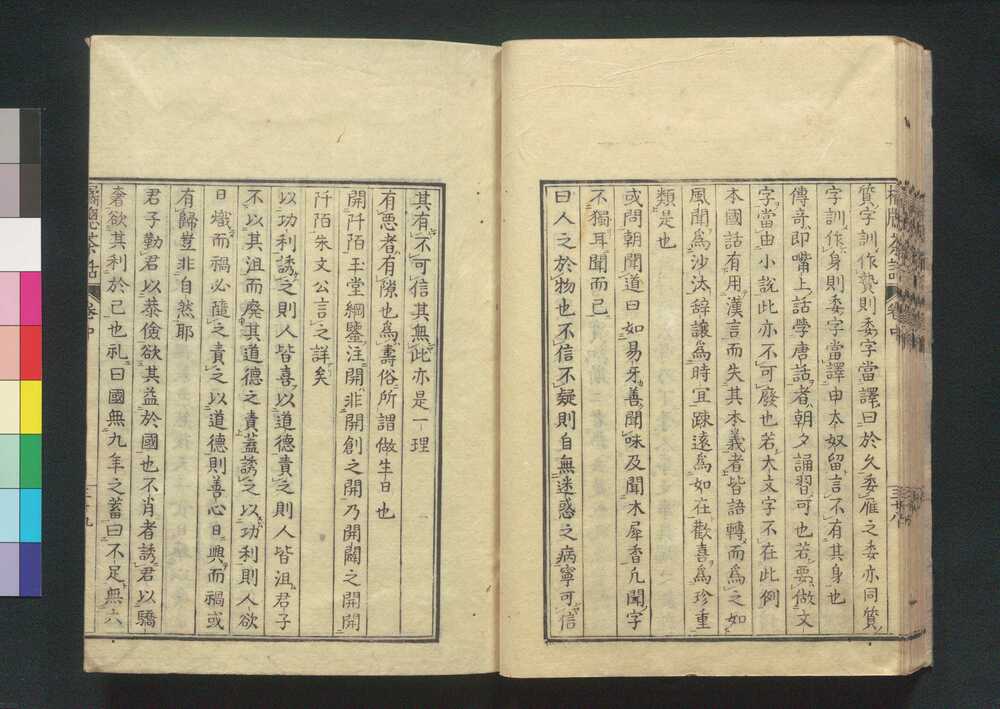 質字訓作贄則委字當譯曰於久委雁之委亦同質
字訓作身則委字當譯申本奴留言不有其身也
傳奇即嘴上話學唐話者朝夕誦習可也若要做文
字當由小說此亦不可廢也若大文字不在此例
本國話有用漢言而失其本義者皆語轉而為之如
風聞為沙汰辭讓為時宜踈遠為如在歡喜為珍重
類是也
或問朝聞道曰如易牙善聞味及聞木犀香凢聞字
不獨耳聞而已
曰人之於物也不信不疑則自無迷惑之病寧可信
其有不可信其無此亦是一理
有惡者有隙也為壽俗所謂做生日也
開阡陌玉堂綱鑒注開非開創之開乃開闢之開開
阡陌朱文公言之詳矣
以功利誘之則人皆喜以道德責之則人皆沮君子
不以其沮而廢其道德之責蓋誘之以功利則人欲
日熾而禍必隨之責之以道德則善心日興而福或
有歸豈非自然耶
君子勤君以恭儉欲其益於國也不肖者誘君以驕
奢欲其利於己也礼曰國無九年之蓄曰不足無六
橘牕茶話 卷中